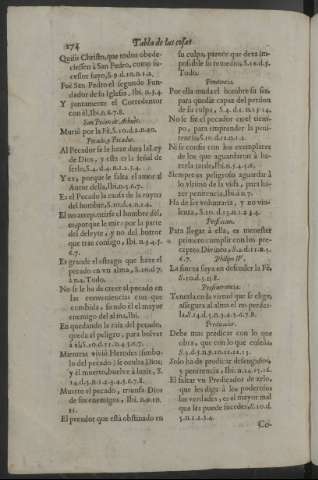 274 Tabla de las cosas
Quiso Christo, que todos obede-
ciessen à San Pedro, como su-
cessor suyo, S.9.d.10.n.1.2.
Fue San Pedro el segundo Fun-
dador de su Iglesia, Ibi. n.5.4.
Y juntamente el Corredentor
con él, Ibi.n.6.7.8.
San Pedro de Arbués.
Murió por la Fè, S.10.d.2.n.40.
Pecado, y Pecador.
Al Pecador se le haze dura la Ley
de Dios, y esta es la señal de
serlo, S.4.d.4.n.1.2.3.4.
Y es, porque le falta el amor al
Autor della, Ibi.n.5.6.7.
Es el Pecado la causa de la ruyna
del hombre, S.10.d.2.n.1.4.
El no arrepentirse el hombre dèl,
es, porque le mira por la parte
del deleyte, y no del horror
que trae consigo, Ibi. n.3.4.5.
6.7.
Es grande el estrago que haze el
pecado en vna alma, S.10.d.7.
2.n.4. Todo.
No se le ha de creer al pecado en
las conveniencias con que
combida, siendo èl el mayor
enemigo del alma, Ibi.
En quedando la raìz del pecado,
queda el peligro, para bolver
à èl, S.10.d.11.n.4.5.6.7.
Mientras viviò Herodes simbo-
lo del pecado, se oculta Dios;
y èl muerto, buelve à luzir, S.
14.d.5.n.1.2.3.4.5.6.7.8.
Muerto el pecado, triunfa Dios
de sus enemigos, Ibi. n.9.10.
11.
El pecador que està obstinado en
su culpa, parece que dexa im-
possible su remedio, S.10.d.5.
Todo.
Penitencia.
Por ella muda el hombre su ser,
para quedar capaz del perdon
de su culpa, S.4.d.5.n.1.2.3.4.
No le fie el pecador en el tiem-
po, para emprender la peni-
tencia, S.10.d.1.n.1.2.
Ni se confie con los exemplares
de los que aguardaron à ha-
zerla tarde, Ibi.n.3.4.5.8.
Siempre es peligroso aguardar à
lo vltimo de la vida, para ha-
zer penitencia, Ibi.d.n.7.
Ha de ser voluntaria, y no vio-
lenta, S.10.d.13.n.1.2.3.4.
Perfeccion.
Para llegar à ella, es menester
primero cumplir con los pre-
ceptos Divinos, S.2.d.11.n.5.
6.7.
Philipo IV.
La fuerça suya en defender la Fè,
S.10.d.5.n.8.
Perseverancia.
Tenerla en la virtud que se elige,
assegura al alma el no perder-
la, S.14.d.5.n.3.4.5.6.7.8.
Predicador.
Debe mas predicar con lo que
obra, que con lo que enseña,
S.4.d.5.n.9.10.11.12.13.
Solo ha de predicar desengaños,
y penitencia, Ibi.n.14.15.16.
El faltar vn Predicador de zelo,
que les diga à los poderosos
las verdades, es el mayor mal
que les puede suceder, S.10.d.
5.n.1.2.3.4.
Co-